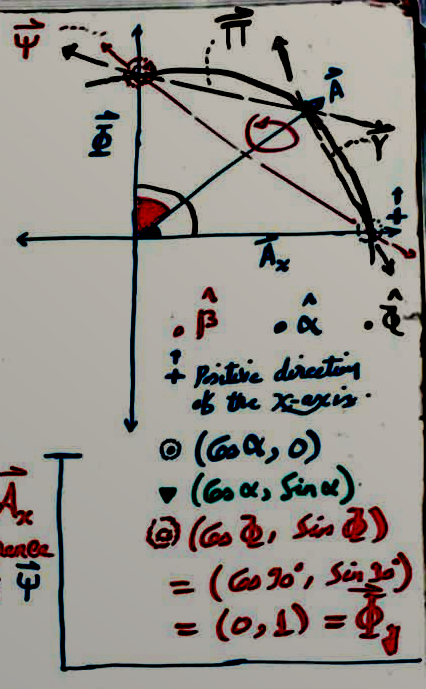 Ψ⃗
Π⃗
A⃗
Φ⃗
γ⃗
↑
+
A⃗ₓ
. β̂ . α̂ . Φ̂
↑
+ Positive direction
of the x-axis.
⊚ (Cos α, 0)
▼ (Cos α, Sin α)
A⃗ₓ
⊚ (Cos Φ, Sin Φ)
Ψ⃗
= (Cos 90°, Sin 90°)
= (0, 1) = Φ⃗_y